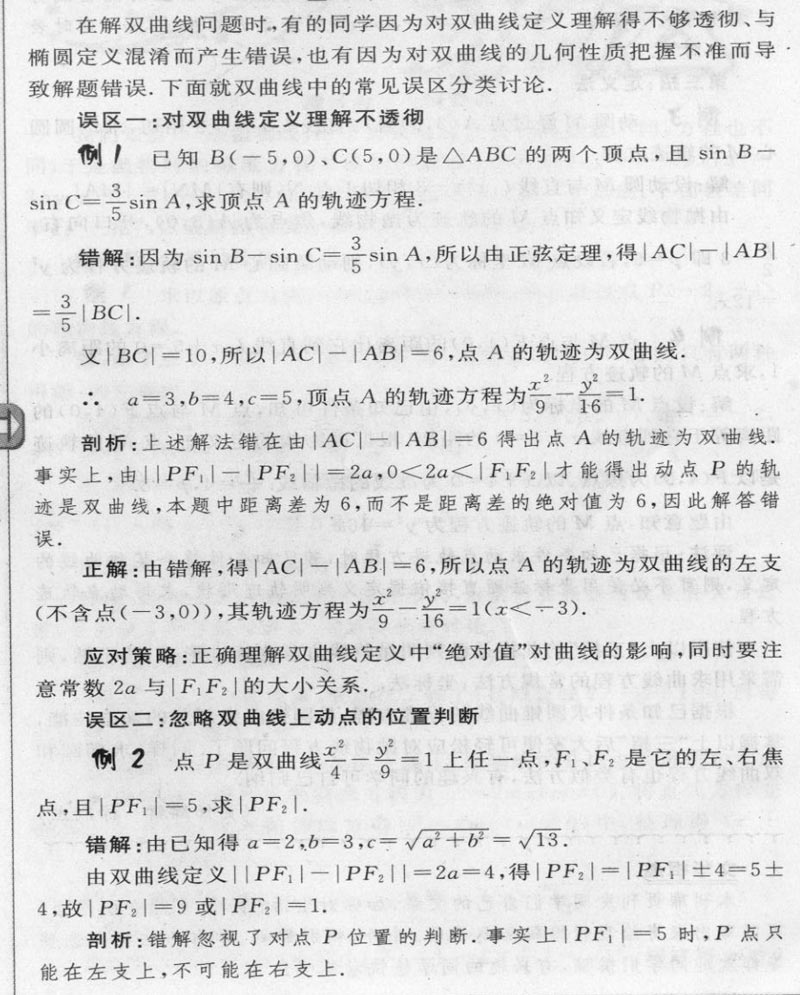 在解双曲线问题时,有的同学因为对双曲线定义理解得不够透彻、与
椭圆定义混淆而产生错误,也有因为对双曲线的几何性质把握不准而导
致解题错误.下面就双曲线中的常见误区分类讨论.
误区一:对双曲线定义理解不透彻
例1 已知 B(-5,0)、C(5,0)是△ABC 的两个顶点,且 sin B-
sin C=3/5 sin A,求顶点 A 的轨迹方程.
错解:因为 sin B-sin C=3/5 sin A,所以由正弦定理,得|AC|-|AB|
=3/5|BC|.
又|BC|=10,所以|AC|-|AB|=6,点 A 的轨迹为双曲线.
∴ a=3,b=4,c=5,顶点 A 的轨迹方程为x²/9-y²/16=1.
剖析:上述解法错在由|AC|-|AB|=6 得出点 A 的轨迹为双曲线.
事实上,由||PF₁|-|PF₂||=2a,0<2a<|F₁F₂|才能得出动点 P 的轨
迹是双曲线,本题中距离差为 6,而不是距离差的绝对值为 6,因此解答错
误.
正解:由错解,得|AC|-|AB|=6,所以点 A 的轨迹为双曲线的左支
(不含点(-3,0)),其轨迹方程为x²/9-y²/16=1(x<-3).
应对策略:正确理解双曲线定义中“绝对值”对曲线的影响,同时要注
意常数 2a 与|F₁F₂|的大小关系.
误区二:忽略双曲线上动点的位置判断
例2 点 P 是双曲线x²/4-y²/9=1 上任一点,F₁、F₂ 是它的左、右焦
点,且|PF₁|=5,求|PF₂|.
错解:由已知得 a=2,b=3,c=√(a²+b²)=√13.
由双曲线定义||PF₁|-|PF₂||=2a=4,得|PF₂|=|PF₁|±4=5±
4,故|PF₂|=9 或|PF₂|=1.
剖析:错解忽视了对点 P 位置的判断.事实上|PF₁|=5 时,P 点只
能在左支上,不可能在右支上.